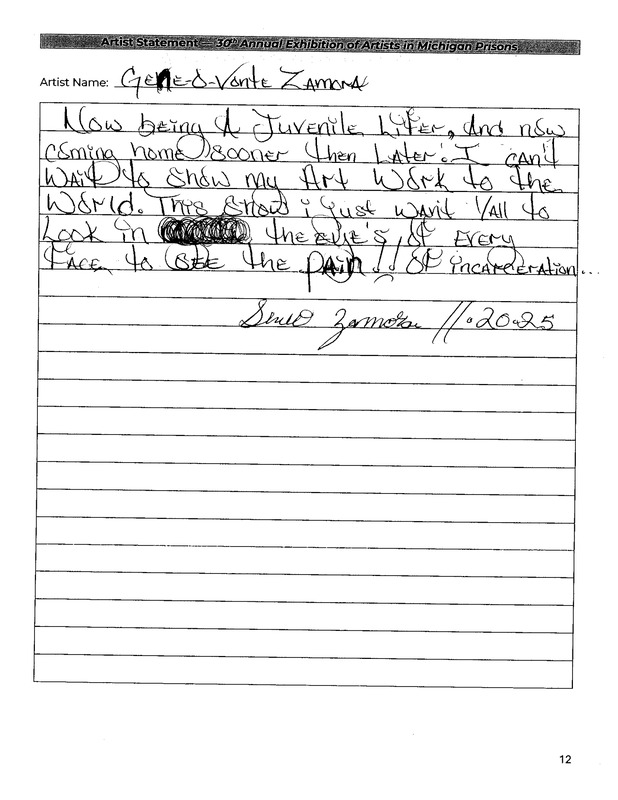 Artist Statement — 30th Annual Exhibition of Artists in Michigan Prisons
Artist Name: Gene-O-Vonte Zamora
Now being A Juvenile Lifer, And now
coming home sooner then Later! I can't
wait to show my Art Work to the
World. This Show i just want Yall to
Look in the eye's of Every
Face, to SEE the pain!! Of incarceration...
Zamora //.20.25
12